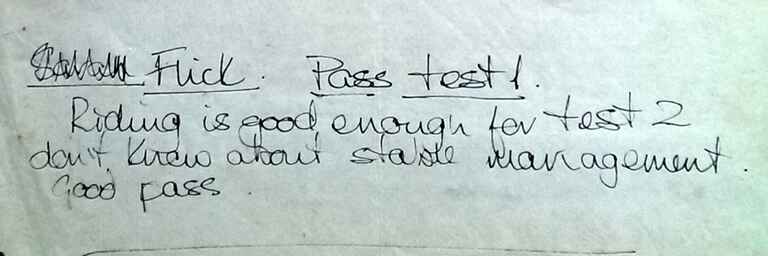 Flick. Pass test 1.
Riding is good enough for test 2
don't know about stable management.
Good pass.